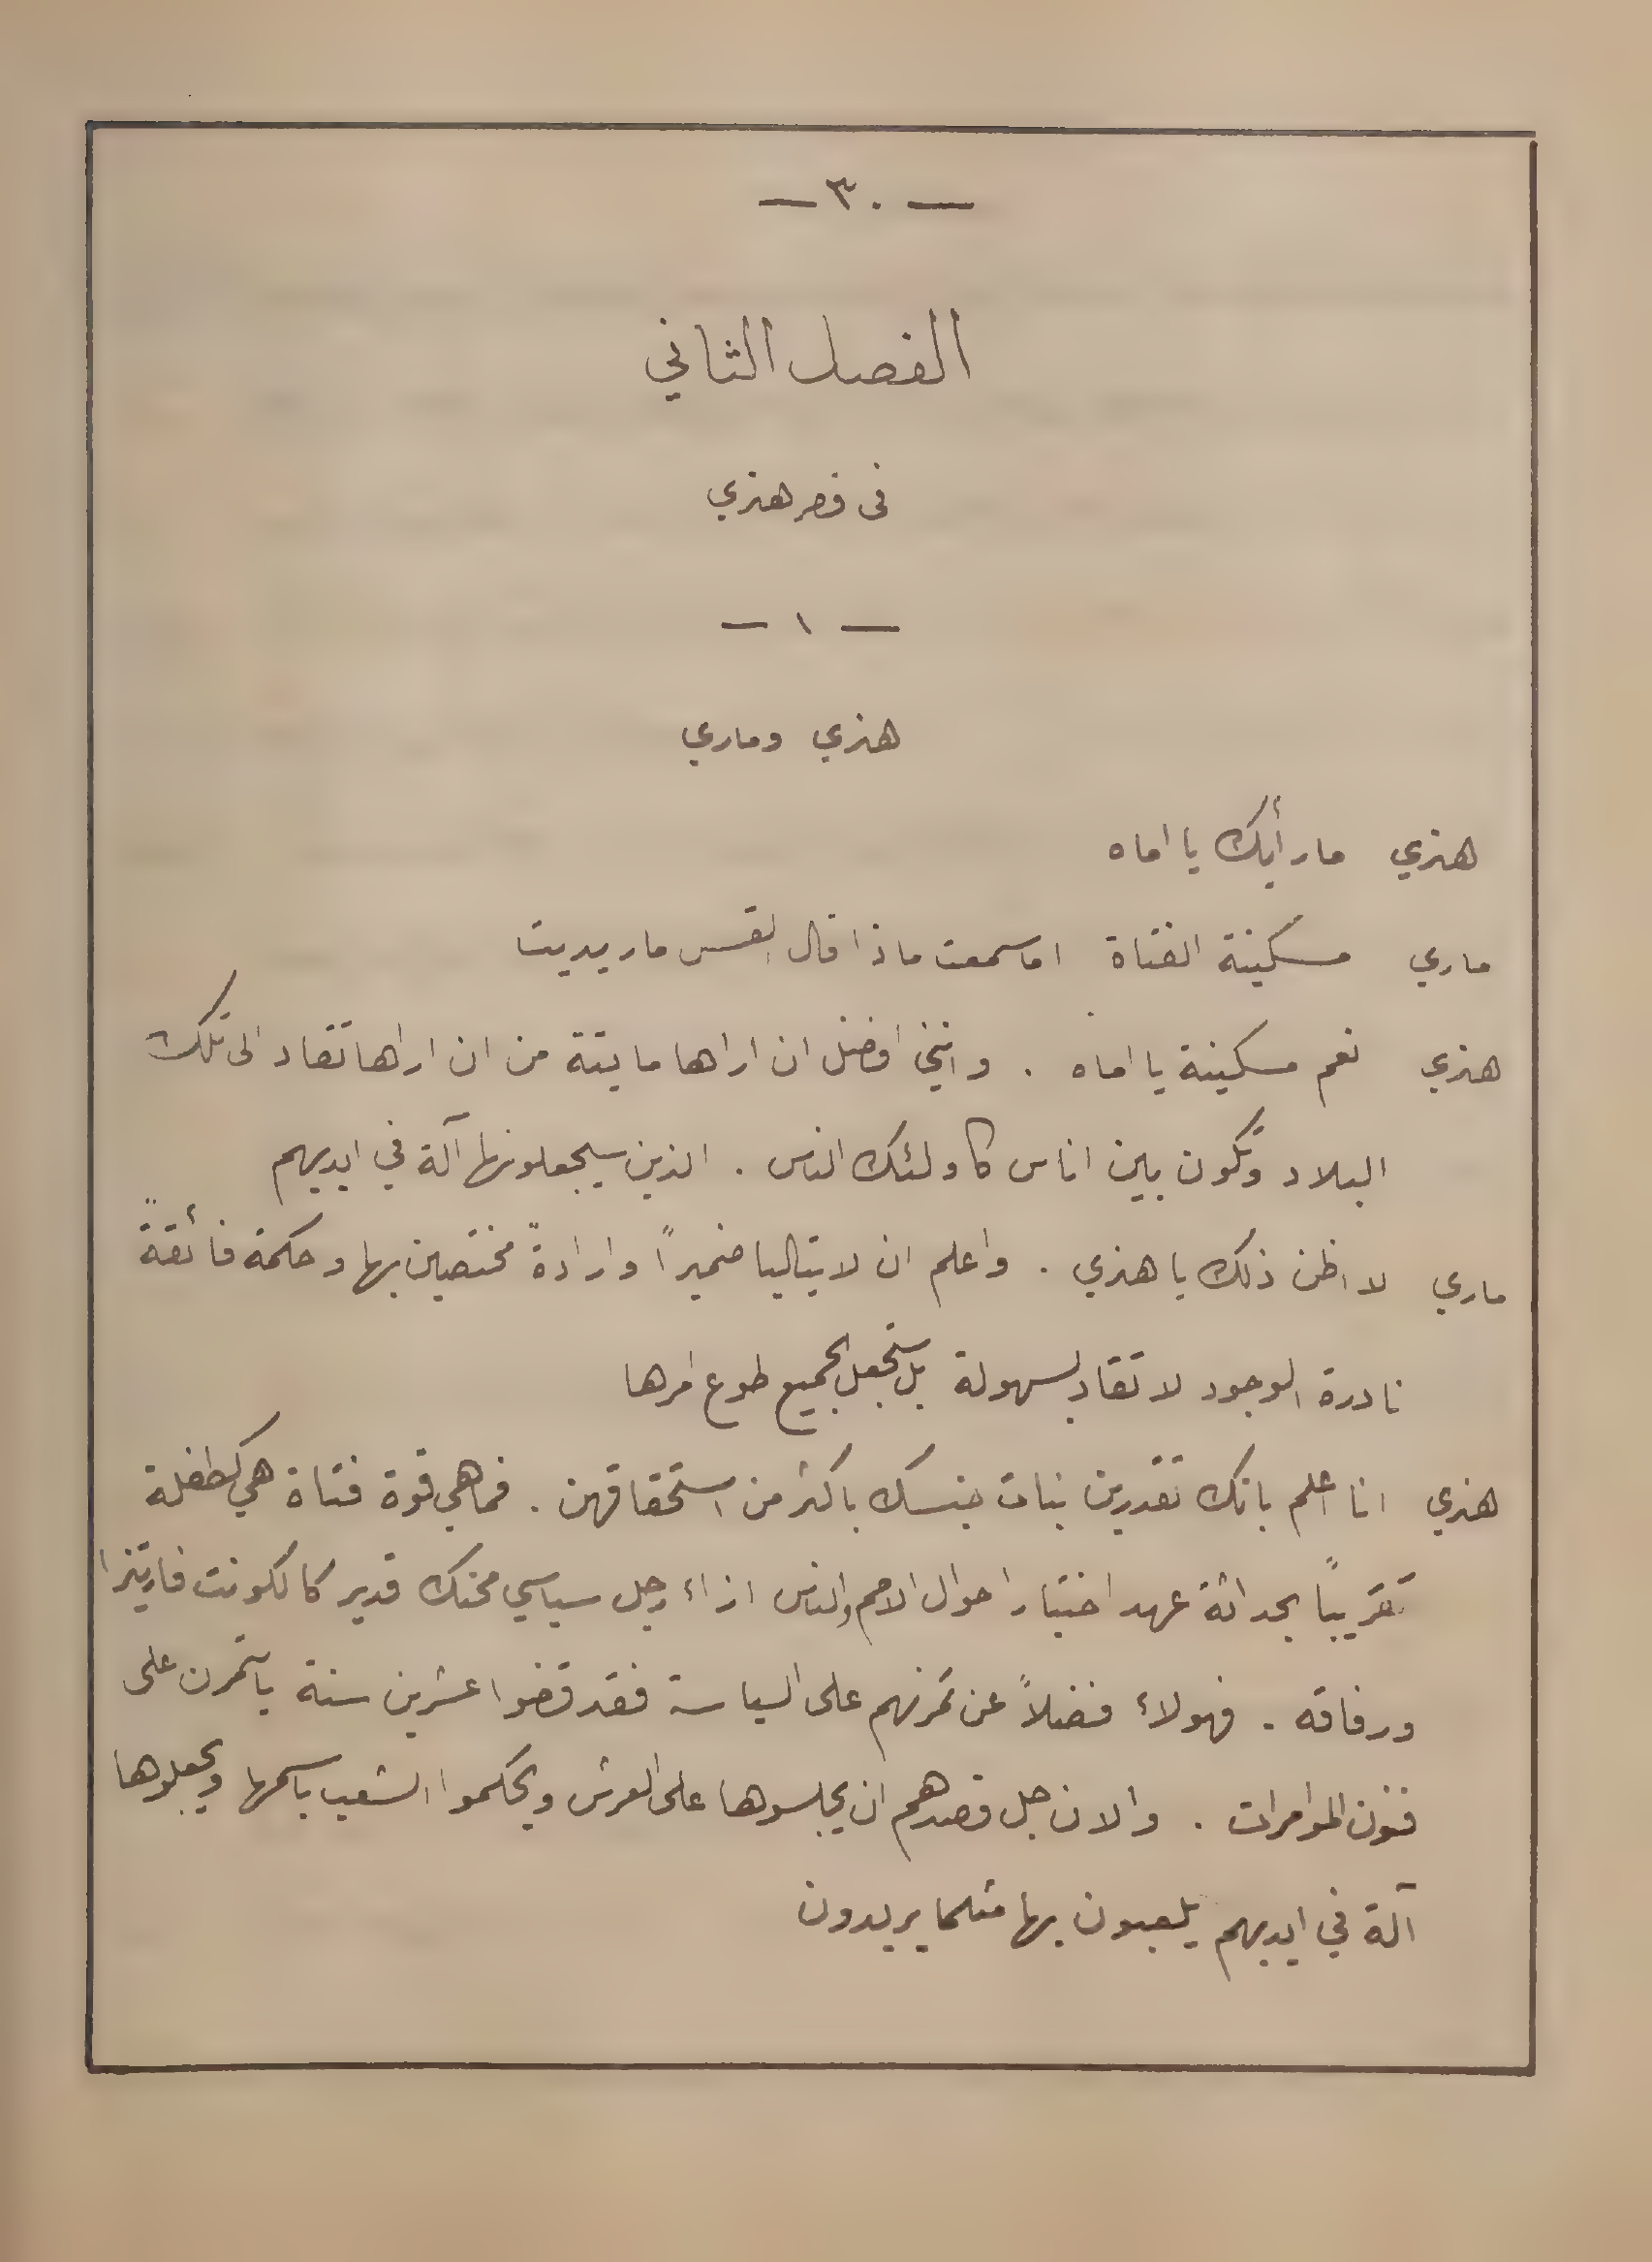 — ٣٠ —
الفصل الثاني
فى قصر هنري
— ١ —
هنري وماري
هنري ما رأيك يا اماه
ماري مسكينة الفتاة اما سمعت ماذا قال القس ماريديت
هنري نعم مسكينة يا اماه . وانني افضل ان اراها مايتة من ان اراها تقاد الى تلك
البلاد وتكون بين اناس كاولئك الناس . الذين سيجعلونها آلة في ايديهم
ماري لا اظن ذلك يا هنري . واعلم ان لايتاليا ضميراً وارادةً مختصين بها وحكمة فائقةً
نادرة الوجود لا تقاد بسهولة بل ستجعل الجميع طوع امرها
هنري انا اعلم بانك تقدرين بنات جنسك باكثر من استحقاقهن . فما هي قوة فتاة هي كطفلة
تقريباً بحداثة عهد اختبار احوال الامم والناس ازاء رجل سياسي محنك قدير كالكونت فاريتزا
ورفاقه . فهولاء فضلاً عن تمرنهم على السياسة فقد قضوا عشرين سنة بالتمرن على
فنون الموامرات . والان جل قصدهم ان يجلسوها على العرش ويحكموا الشعب باسمها ويجعلوها
آلة في ايديهم يلعبون بها مثلما يريدون